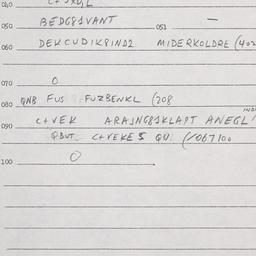 040
050 BEDG81VANT 051 —
060 DEKCUDIK8IND2 MIDERKOLDRE (402
070 0
080 QNB FUS FUZBENKL (208
090 C+VEK ARAJNG81KLAPT ANEGL
QBUT C+VEKE5 QU (/067100
100 0